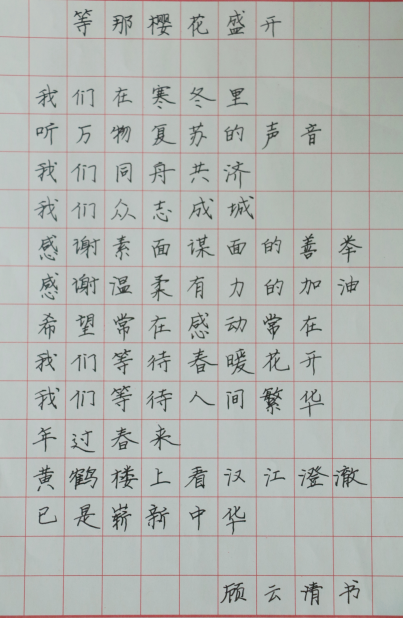 等那樱花盛开
我们在寒冬里
听万物复苏的声音
我们同舟共济
我们众志成城
感谢素面谋面的善举
感谢温柔有力的加油
希望常在感动常在
我们等待春暖花开
我们等待人间繁华
年过春来
黄鹤楼上看汉江澄澈
已是崭新中华
顾云清书